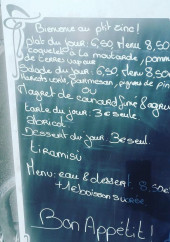 Bienvenue au p'tit zinc!
plat du jour: 6,50 Menu 8,50
coquelet à la moutarde, pomme
de terres vapeur
Salade du jour: 6,50 Menu 8,50
parmesan, pignons de pin
OU
Magret de canard fumé & agru
tarte du jour: 3€ seule.
abricot
Dessert du jour: 3€ seul.
tiramisu
Menu: eau & dessert 8,50€
+1€ boisson sucrée
Bon Appétit!